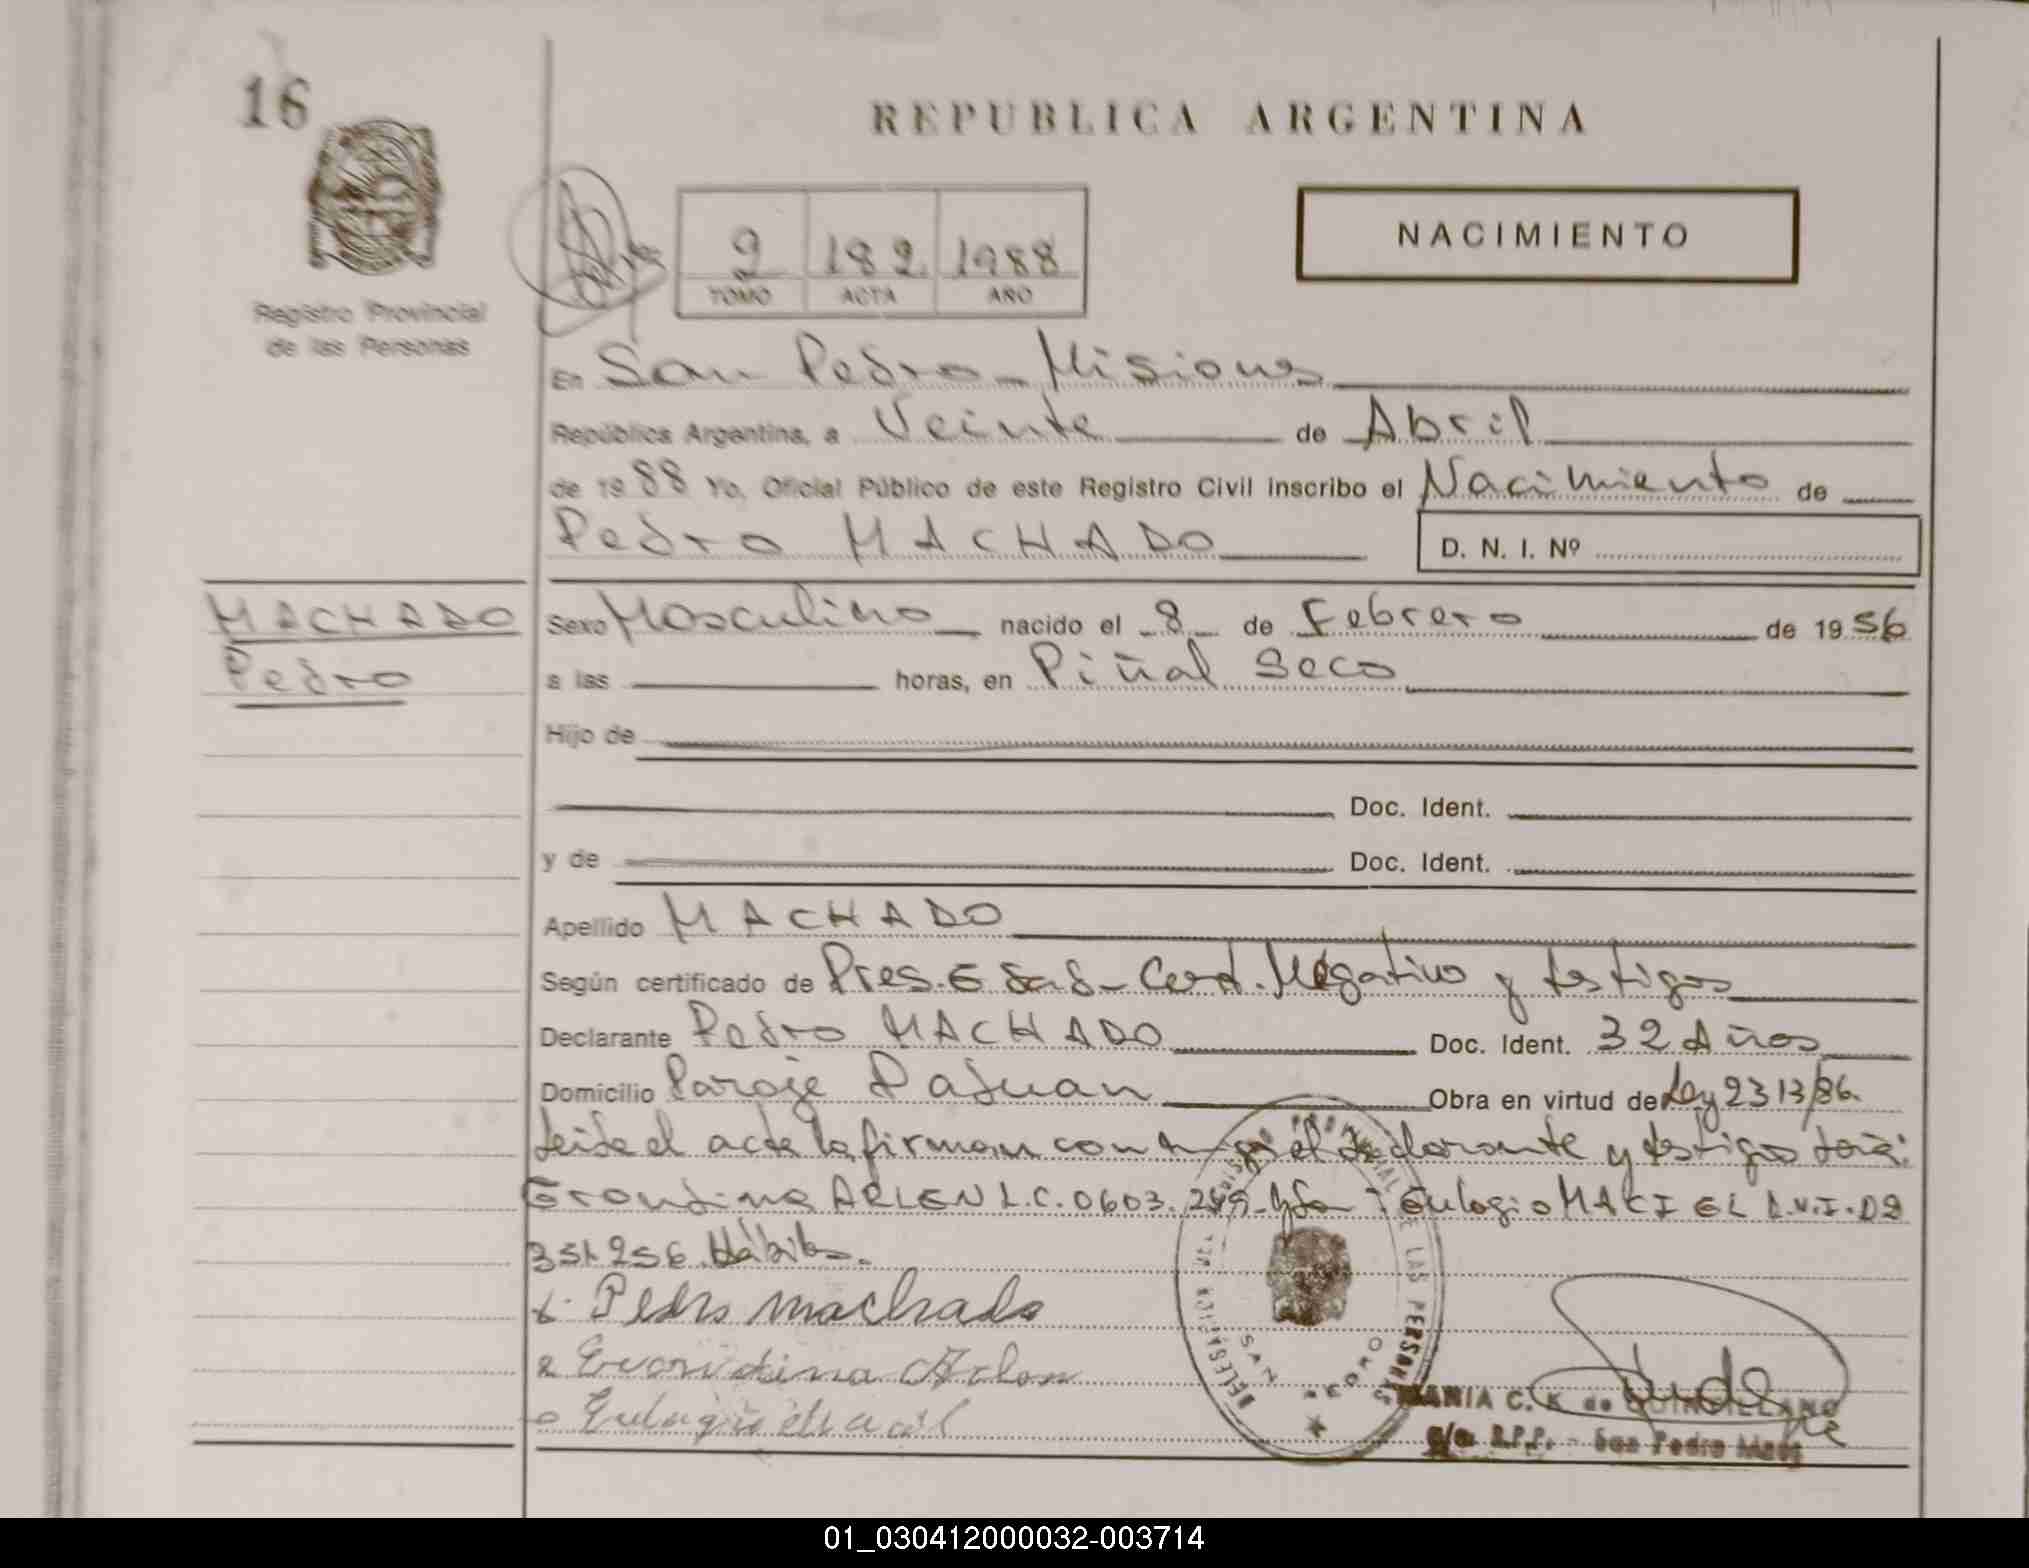 16
REPUBLICA ARGENTINA
NACIMIENTO
2 182 1988
TOMO ACTA AÑO
Registro Provincial
de las Personas
En San Pedro - Misiones
República Argentina, a Veinte de Abril
de 1988 Yo, Oficial Público de este Registro Civil inscribo el Nacimiento de
Pedro MACHADO
D. N. I. Nº
MACHADO
Pedro
Sexo Masculino nacido el 8 de Febrero de 1956
a las horas, en Piñal Seco
Hijo de
Doc. Ident.
y de Doc. Ident.
Apellido MACHADO
Según certificado de Pres. Edad - Cert. Negativo y testigos
Declarante Pedro MACHADO Doc. Ident. 32 Años
Domicilio Paraje Pasuan Obra en virtud de Ley 2313/86.
Leída el acta la firman con migo el declarante y testigos
ARLEN L.C. 0603. Eulogio MACIEL
351.256 Hábiles.
Pedro machado
Arlen
DELEGACION
SAN PEDRO
DE LAS PERSONAS
MANIA C. K. de QUINTILLANO
R.P.P. - San Pedro Mnes
01_030412000032-003714